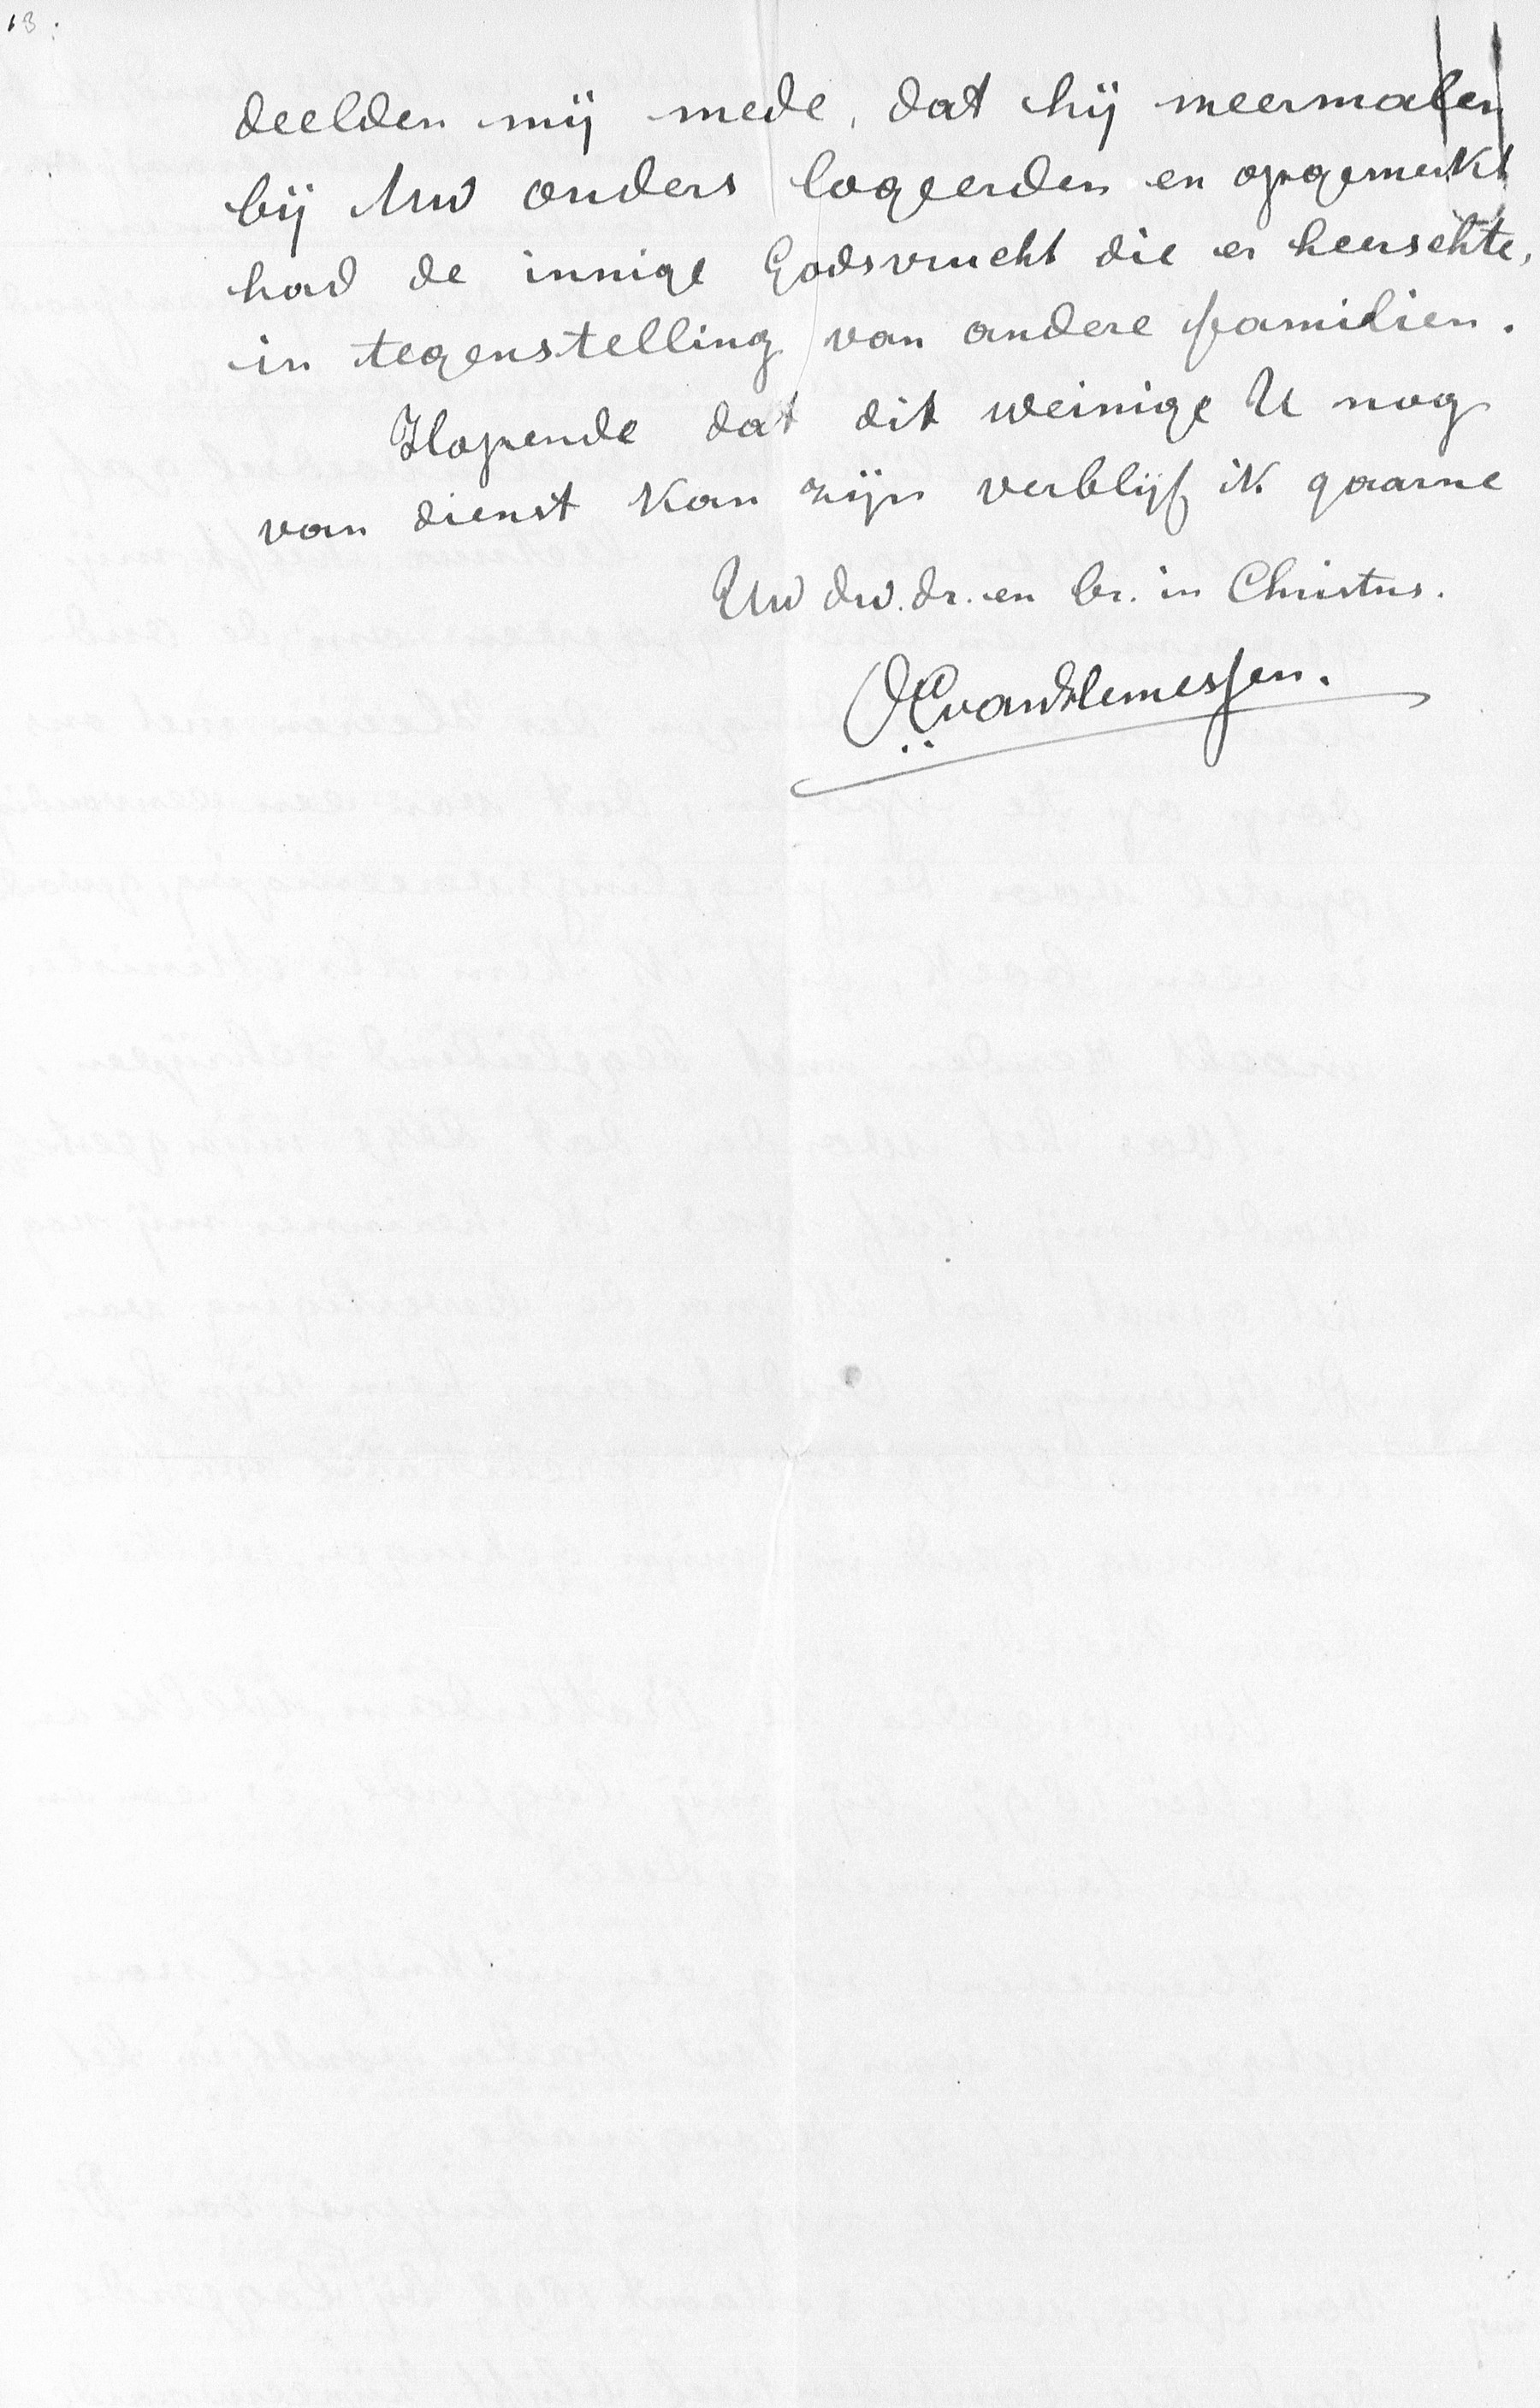 13.
deelden mij mede, dat hij meermalen
bij Uw ouders logeerden en opgemerkt
had de innige Godsvrucht die er heerschte,
in tegenstelling van andere familien.
Hopende dat dit weinige U nog
van dienst kan zijn verblijf ik gaarne
Uw dw. dr. en br. in Christus.
van Hemessen.